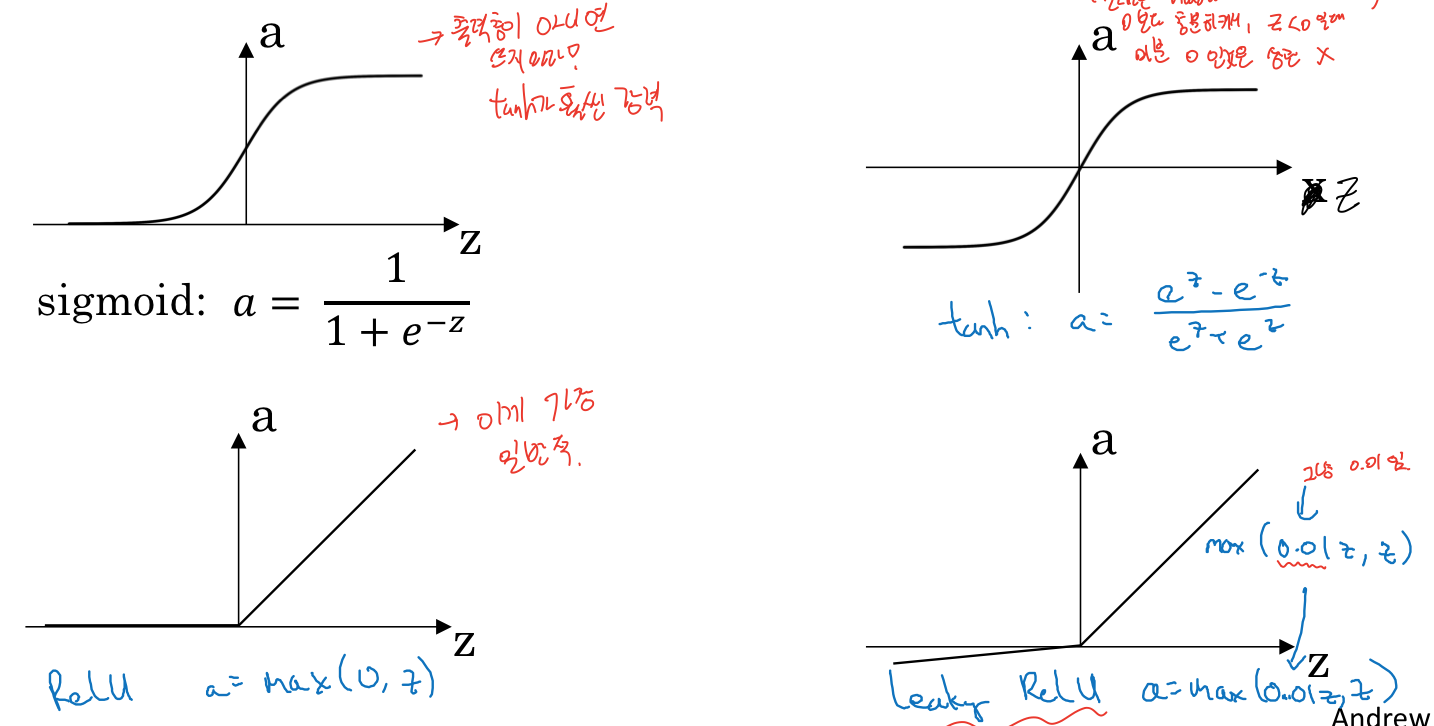 a
→ 출력층이 아니면
쓰지마라!
tanh가 훨씬 강력
z
sigmoid: a = 1 / (1 + e^{-z})
0보다 충분히커서, z<0일때
미분 0 인것은 상관 X
a
z
tanh: a = (e^z - e^{-z}) / (e^z + e^z)
a
→ 이게 가장
일반적.
z
ReLU a = max(0, z)
a
그냥 0.01임
max (0.01z, z)
z
Leaky ReLU a = max(0.01z, z)
Andrew